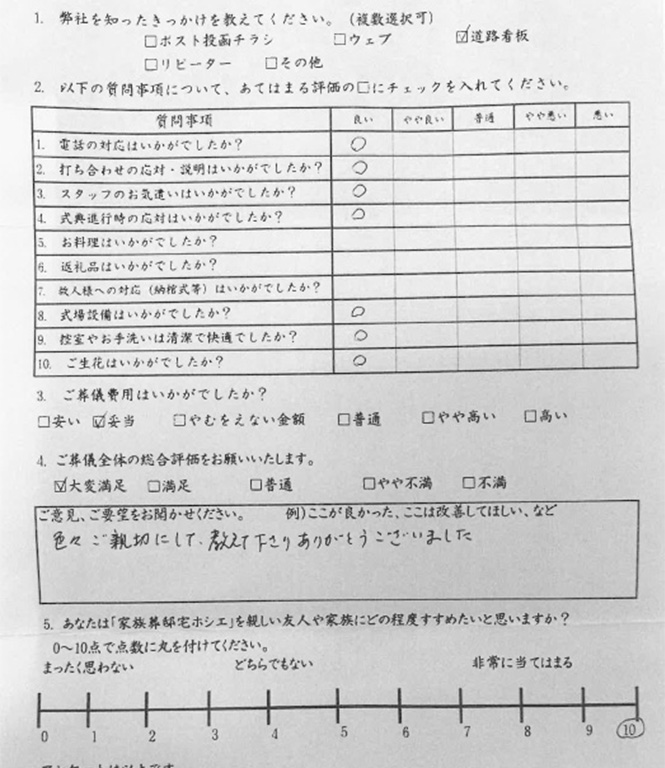 1. 弊社を知ったきっかけを教えてください。(複数選択可)
□ポスト投函チラシ □ウェブ ☑道路看板
□リピーター □その他
2. 以下の質問事項について、あてはまる評価の□にチェックを入れてください。
質問事項 良い やや良い 普通 やや悪い 悪い
1. 電話の対応はいかがでしたか? ○
2. 打ち合わせの応対・説明はいかがでしたか? ○
3. スタッフのお気遣いはいかがでしたか? ○
4. 式典進行時の応対はいかがでしたか? ○
5. お料理はいかがでしたか?
6. 返礼品はいかがでしたか?
7. 故人様への対応(納棺式等)はいかがでしたか?
8. 式場設備はいかがでしたか? ○
9. 控室やお手洗いは清潔で快適でしたか? ○
10. ご生花はいかがでしたか? ○
3. ご葬儀費用はいかがでしたか?
□安い ☑妥当 □やむをえない金額 □普通 □やや高い □高い
4. ご葬儀全体の総合評価をお願いいたします。
☑大変満足 □満足 □普通 □やや不満 □不満
ご意見、ご要望をお聞かせください。 例)ここが良かった、ここは改善してほしい、など
色々ご親切にして、教えて下さりありがとうございました
5. あなたは「家族葬邸宅ホシエ」を親しい友人や家族にどの程度すすめたいと思いますか?
0~10点で点数に丸を付けてください。
まったく思わない どちらでもない 非常に当てはまる
0 1 2 3 4 5 6 7 8 9 10